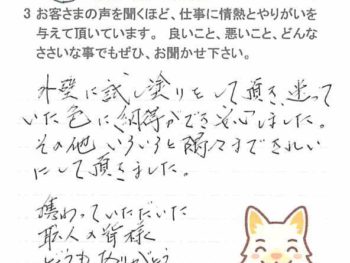 3 お客さまの声を聞くほど、仕事に情熱とやりがいを
与えて頂いています。 良いこと、悪いこと、どんな
ささいな事でもぜひ、お聞かせ下さい。
外壁に試し塗りをして頂き、迷って
いた色に納得ができ安心しました。
その他 いろいろと隅々まできれい
にして頂きました。
携わっていただいた
職人の皆様
どうもありがとう